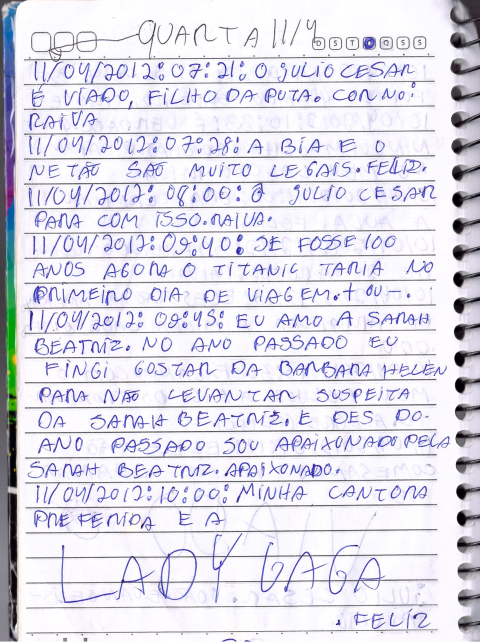 QUARTA 11/4
D S T Q Q S S
11/04/2012: 07:21: O JULIO CESAR
É VIADO, FILHO DA PUTA. CORNO:
RAIVA
11/04/2012: 07:28: A BIA E O
NETÃO SÃO MUITO LEGAIS. FELIZ.
11/04/2012: 08:00: O JULIO CESAR
PARA COM ISSO. RAIVA.
11/04/2012: 09:40: SE FOSSE 100
ANOS AGORA O TITANIC TARIA NO
PRIMEIRO DIA DE VIAGEM. + OU -.
11/04/2012: 09:45: EU AMO A SARAH
BEATRIZ. NO ANO PASSADO EU
FINGI GOSTAR DA BARBARA HELEN
PARA NÃO LEVANTAR SUSPEITA
DA SARAH BEATRIZ. E DES DO
ANO PASSADO SOU APAIXONADO PELA
SARAH BEATRIZ. APAIXONADO.
11/04/2012: 10:00: MINHA CANTORA
PREFERIDA E A
LADY GAGA
. FELIZ